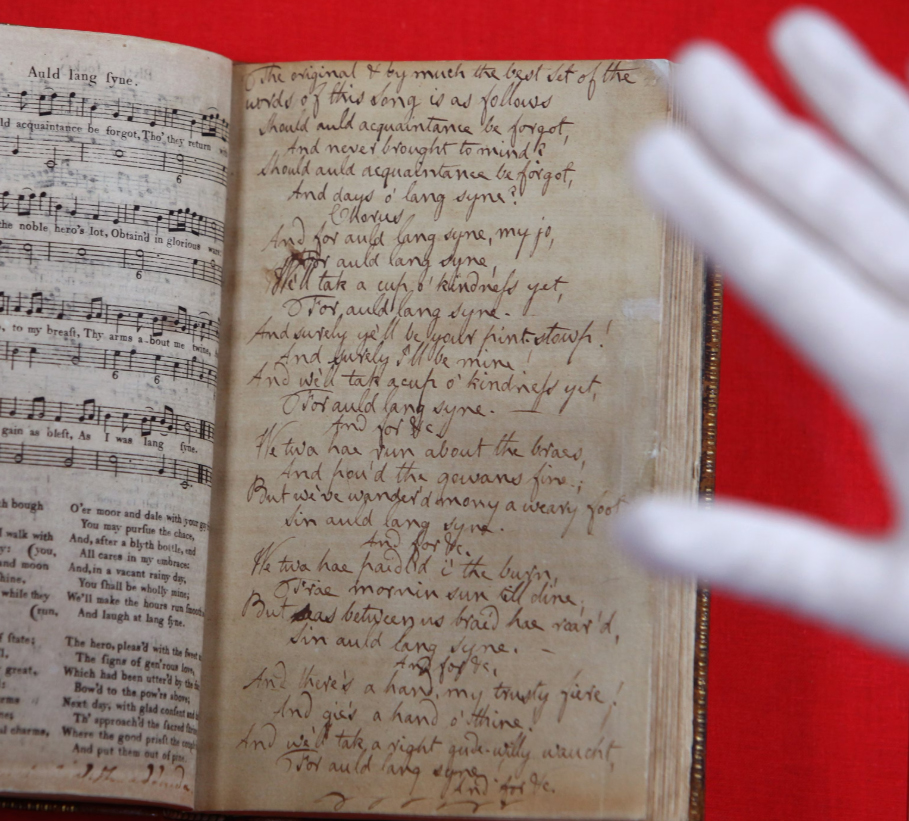 Auld lang ſyne.
ld acquaintance be forgot, Tho' they return
6
the noble hero's lot, Obtain'd in glorious war:
6
, to my breaſt, Thy arms a bout me twine,
6 6
gain as bleſt, As I was lang ſyne.
th bough
I walk with
y: (you,
and moon
hine,
while they
(run,
f ſtate;
l,
great,
rms
al charms,
O'er moor and dale with your
You may purſue the chace,
And, after a blyth bottle, end
All cares in my embrace:
And, in a vacant rainy day,
You ſhall be wholly mine;
We'll make the hours run ſmooth
And laugh at lang ſyne.
The hero, pleas'd with the ſweet
The ſigns of gen'rous love,
Which had been utter'd by the
Bow'd to the pow'rs above;
Next day, with glad conſent and
Th' approach'd the ſacred
Where the good prieſt the
And put them out of pine.
The original & by much the best set of the
words of this song is as follows
Should auld acquaintance be forgot,
And never brought to mind?
Should auld acquaintance be forgot,
And days o' lang syne?
Chorus
And for auld lang syne, my jo,
For auld lang syne,
We'll tak a cup o' kindneſs yet,
For auld lang syne.
And surely ye'll be your pint-stowp!
And surely I'll be mine!
And we'll tak a cup o' kindneſs yet,
For auld lang syne. —
And for &c.
We twa hae run about the braes,
And pou'd the gowans fine;
But we've wander'd mony a weary foot
Sin auld lang syne.
And for &c.
We twa hae paidl'd i' the burn,
Frae mornin sun till dine;
But seas between us braid hae roar'd,
Sin auld lang syne. —
And for &c.
And there's a hand, my trusty fiere!
And gie's a hand o' thine!
And we'll tak a right gude-willy waught,
For auld lang syne
And for &c.